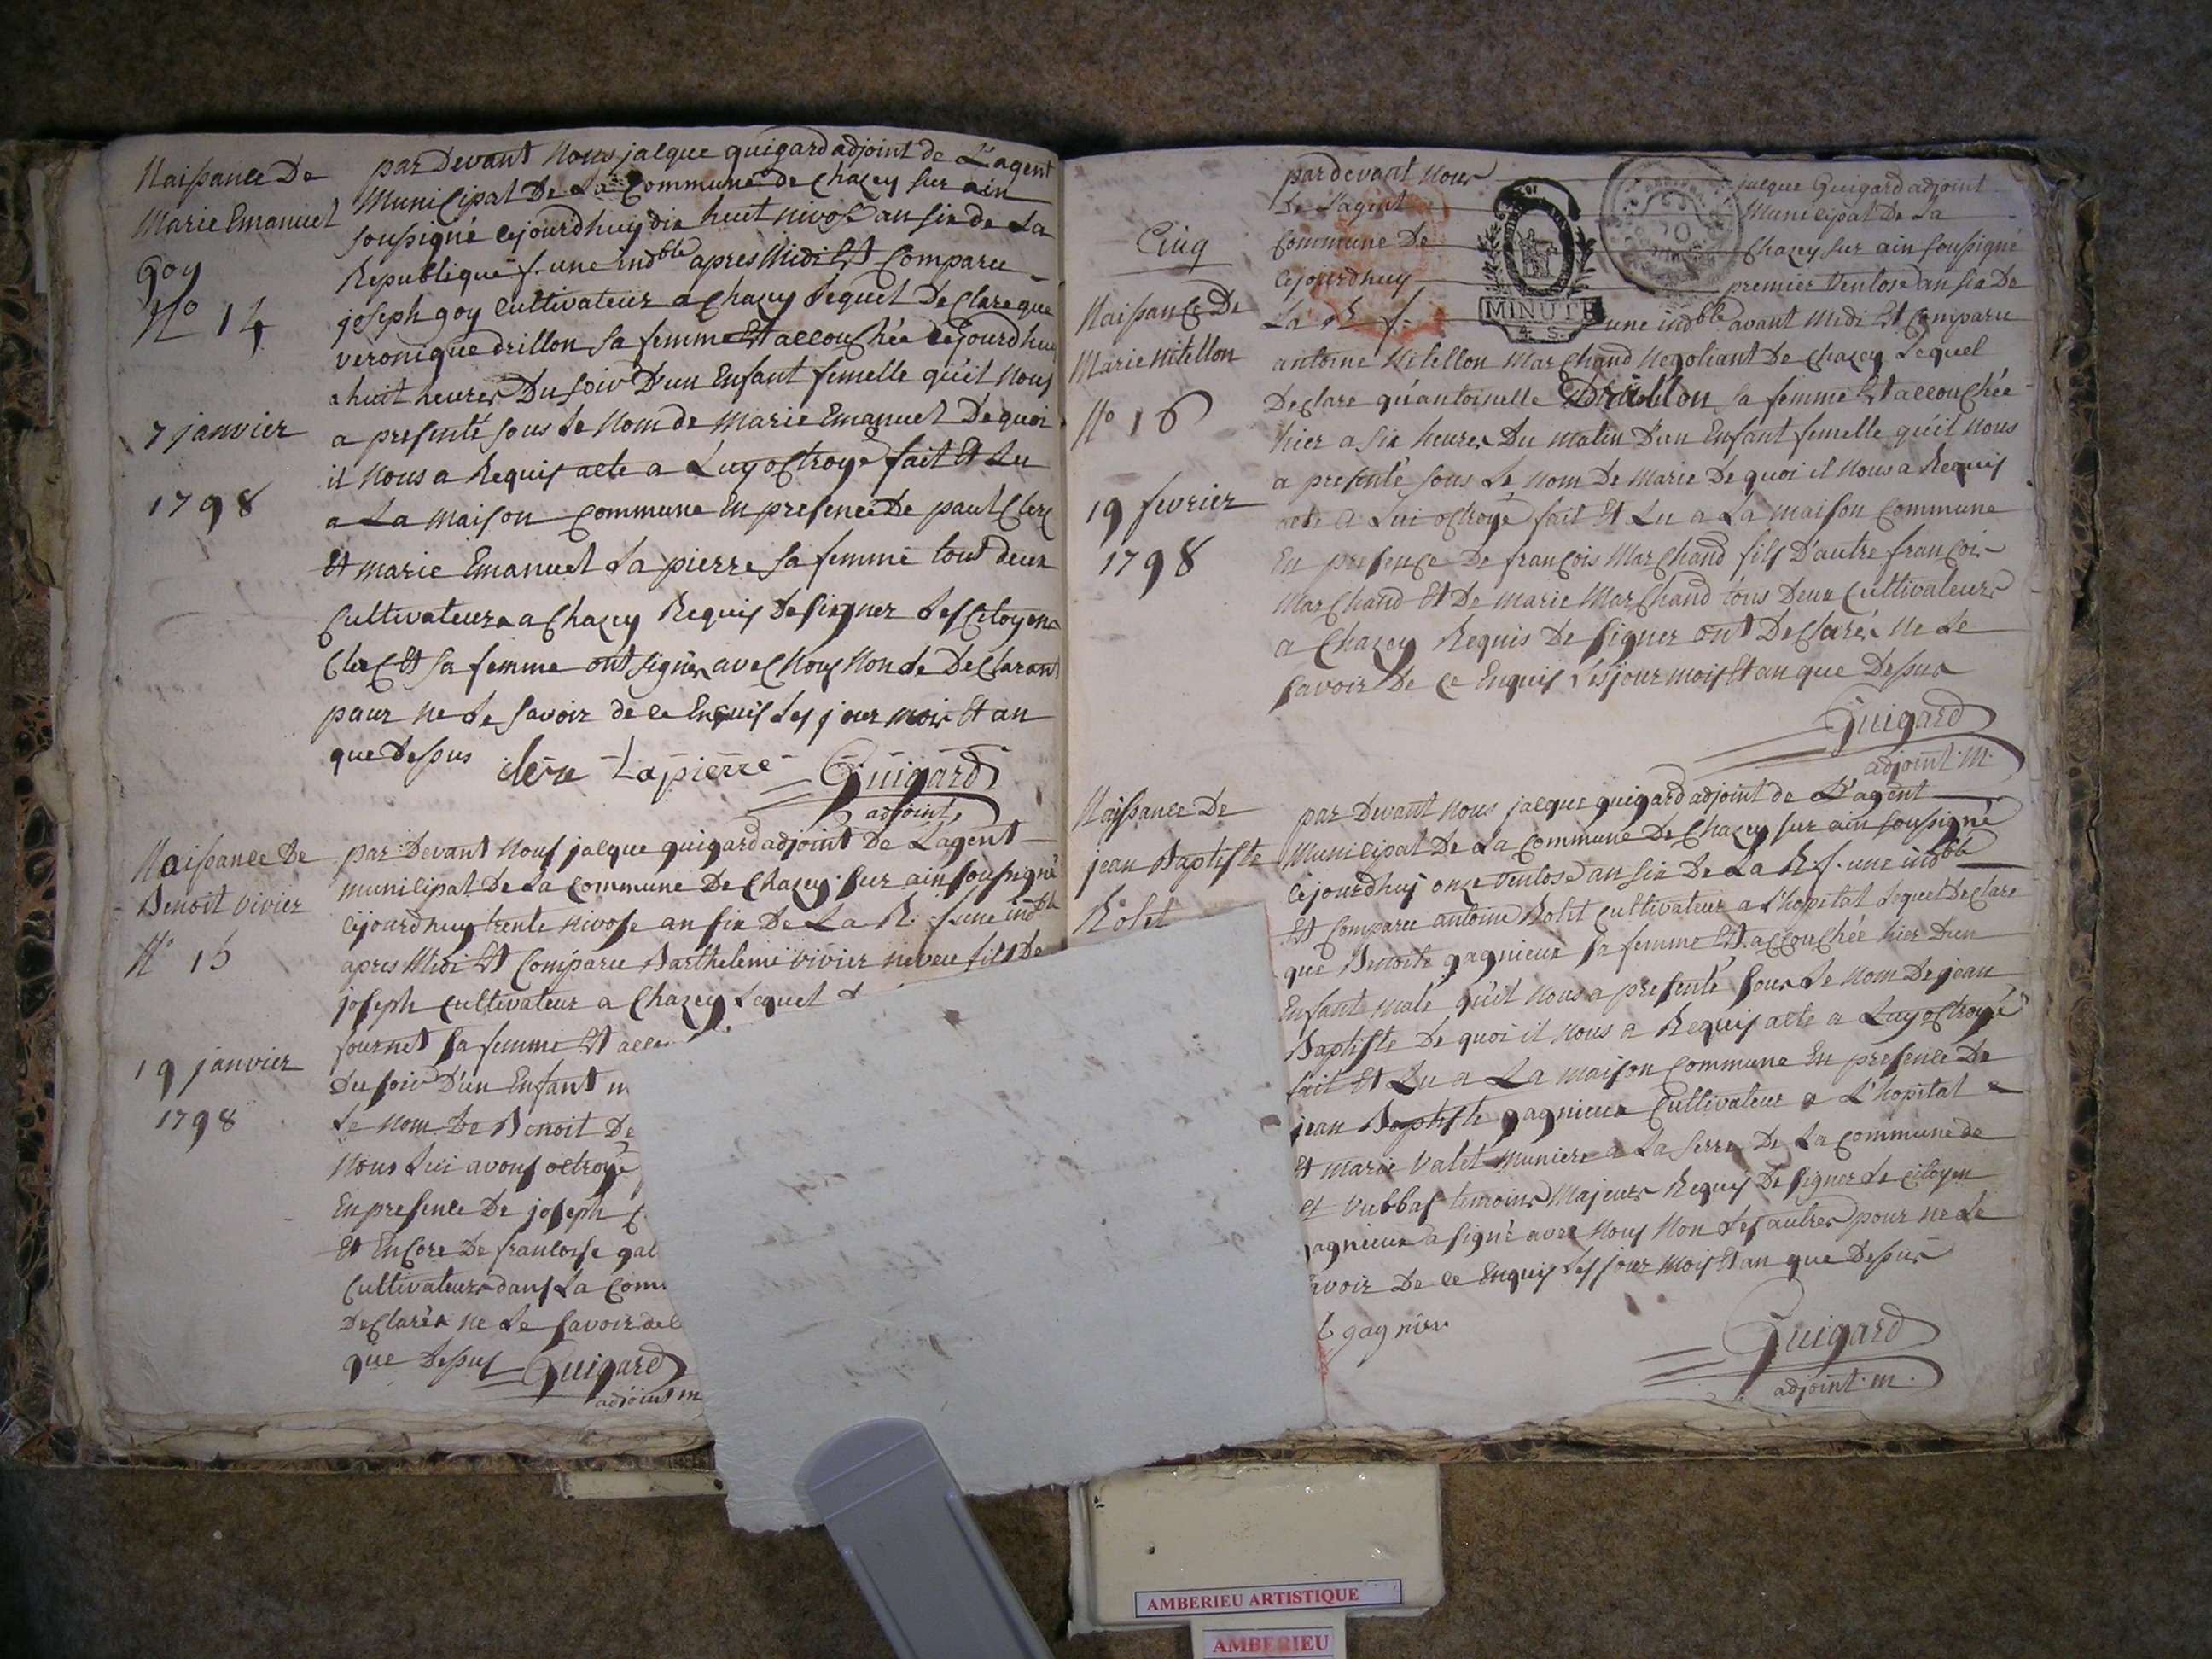 Naissance De
Marie Emanuel
Goy
No 14
7 janvier
1798
par Devant Nous jacque guigard adjoint de L'agent
Municipal De La Commune de Chazey sur ain
soussigné cejourdhuy dix huit nivose an six de La
Republique f. une indble apres Midi Et Comparu
joseph goy cultivateur a Chazey Lequel Declare que
veronique drillon sa femme Et accouchée cejourdhuy
a huit heures Du soir D'un Enfant femelle qu'il Nous
a presenté sous Le Nom de Marie Emanuel De quoi
il Nous a Requis acte a Luy octroyé fait Et Lu
a La maison Commune En presence De paul Clerc
Et marie Emanuel La pierre sa femme tous deux
Cultivateurs a Chazey Requis De signer Les Citoyens
Clerc Et sa femme ont signés avec Nous Non Le Declarant
pour ne Le savoir de ce Enquis Les jour mois Et an
que Dessus
Lapierre
Guigard
adjoint
Naissance De
Benoit vivier
No 15
19 janvier
1798
par Devant Nous jacque guigard adjoint De L'agent
municipal De La Commune De Chazey sur ain soussigné
cejourdhuy trente nivose an six De La R. f. une indble
apres Midi Et Comparu Barthelemi vivier neveu fils De
joseph cultivateur a Chazey Lequel
fournet sa femme Et acc
Du soir D'un Enfant m
Le Nom De Benoit De
Nous Lui avons octroyé
En presence De joseph
Et Encore De francoise gal
Cultivateurs dans La Com
Declarés ne Le savoir de
que Dessus Guigard
adjoint m
Cinq
Naissance De
Marie Nitellon
No 16
19 fevrier
1798
pardevant Nous jacque Guigard adjoint
De L'agent Municipal De La
Commune De Chazey sur ain soussigné
cejourdhuy premier ventose an six De
La R. f. une indble avant Midi Et Comparu
MINUTE
4. S.
antoine Nitellon Marchand Negotiant De Chazey Lequel
Declare qu'antoinette Drillon sa femme Et accouchée
hier a six heures Du matin D'un Enfant femelle qu'il Nous
a presenté sous Le Nom De Marie De quoi il Nous a Requis
acte a Lui octroyé fait Et Lu a La maison Commune
En presence De françois Marchand fils D'autre françois
Marchand Et De marie Marchand tous Deux Cultivateurs
a Chazey Requis De signer ont Declarés Ne Le
savoir De ce Enquis Les jour mois Et an que Dessus
Guigard
adjoint M.
Naissance De
jean Baptiste
Rolet
par Devant Nous jacque guigard adjoint de L'agent
Municipal De La Commune De Chazey sur ain soussigné
cejourdhuy onze ventose an six De La R. f. une indble
Et Comparu antoine Rolet cultivateur a L'hopital Lequel Declare
que Benoite gagnieux sa femme Et accouchée hier D'un
Enfant male qu'il Nous a presenté sous Le Nom De jean
Baptiste De quoi il Nous a Requis acte a Luy octroyé
fait Et Lu a La maison Commune En presence De
jean Baptiste gagnieux Cultivateur a L'hopital
Et marie valet muniere a La serre De La Commune de
Et vubbas temoins Majeurs Requis De signer Le Citoyen
agnieux a signé avec Nous Non Les autres pour ne Le
avoir De ce Enquis Les jour Mois Et an que Dessus
gagnieu
Guigard
adjoint. m.
AMBERIEU ARTISTIQUE
AMBERIEU